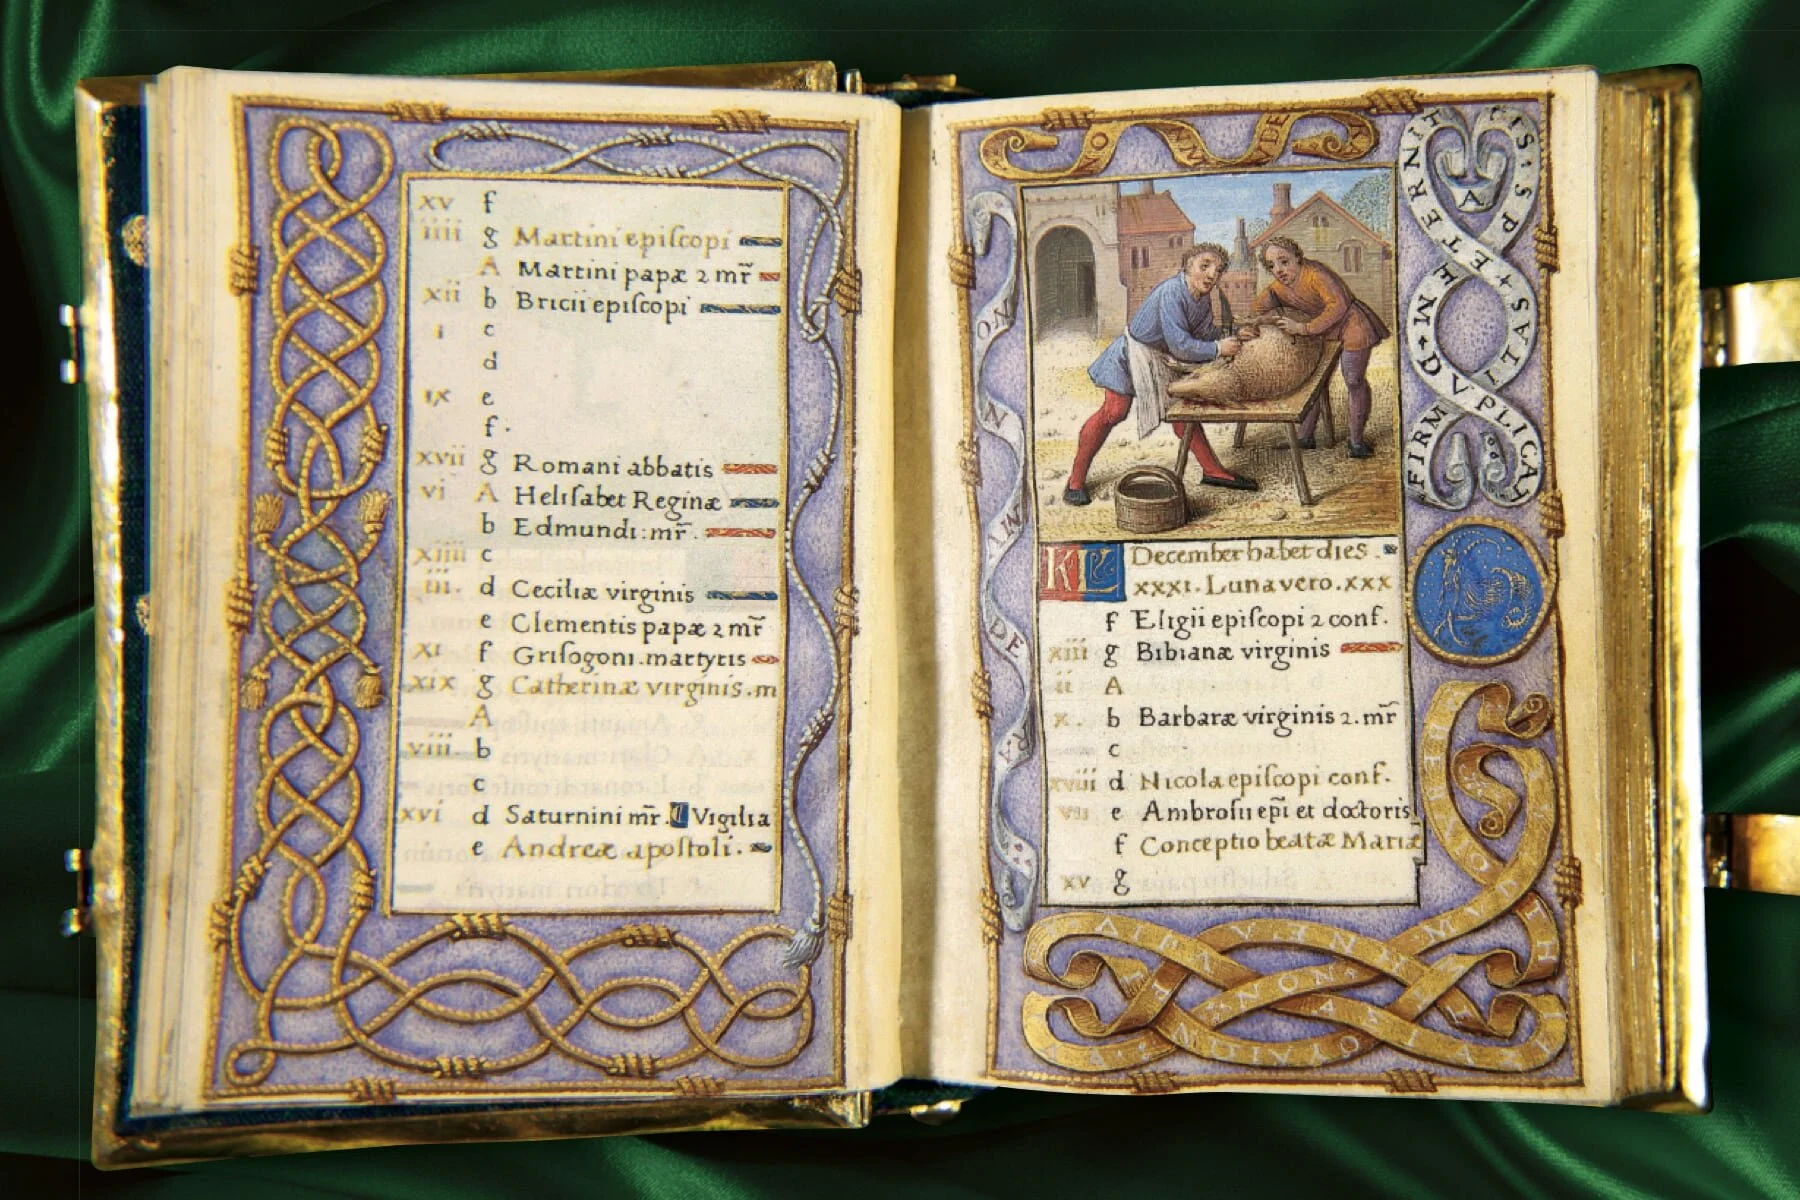 xv f
iiii g Martini episcopi
A Martini papæ 2 mr̃
xii b Bricii episcopi
i c
d
ix e
f.
xvii g Romani abbatis
vi A Helisabet Reginæ
b Edmundi: mr̃.
xiiii c
iii. d Ceciliæ virginis
e Clementis papæ 2 mr̃
xi f Grisogoni. martyris
xix g Catherinæ virginis. m
A
viii b
c
xvi d Saturnini mr̃. Vigilia
e Andreæ apostoli.
NON
IN
DE
FIRMAVPLICATIS
KL December habet dies.
xxxi. Luna vero. xxx
f Eligii episcopi 2 conf.
xiii g Bibianæ virginis
ii A
x. b Barbaræ virginis 2. mr̃
c
xviii d Nicola episcopi conf.
vii e Ambrosii ep̃i et doctoris
f Conceptio beatæ Mariæ
xv g
NON